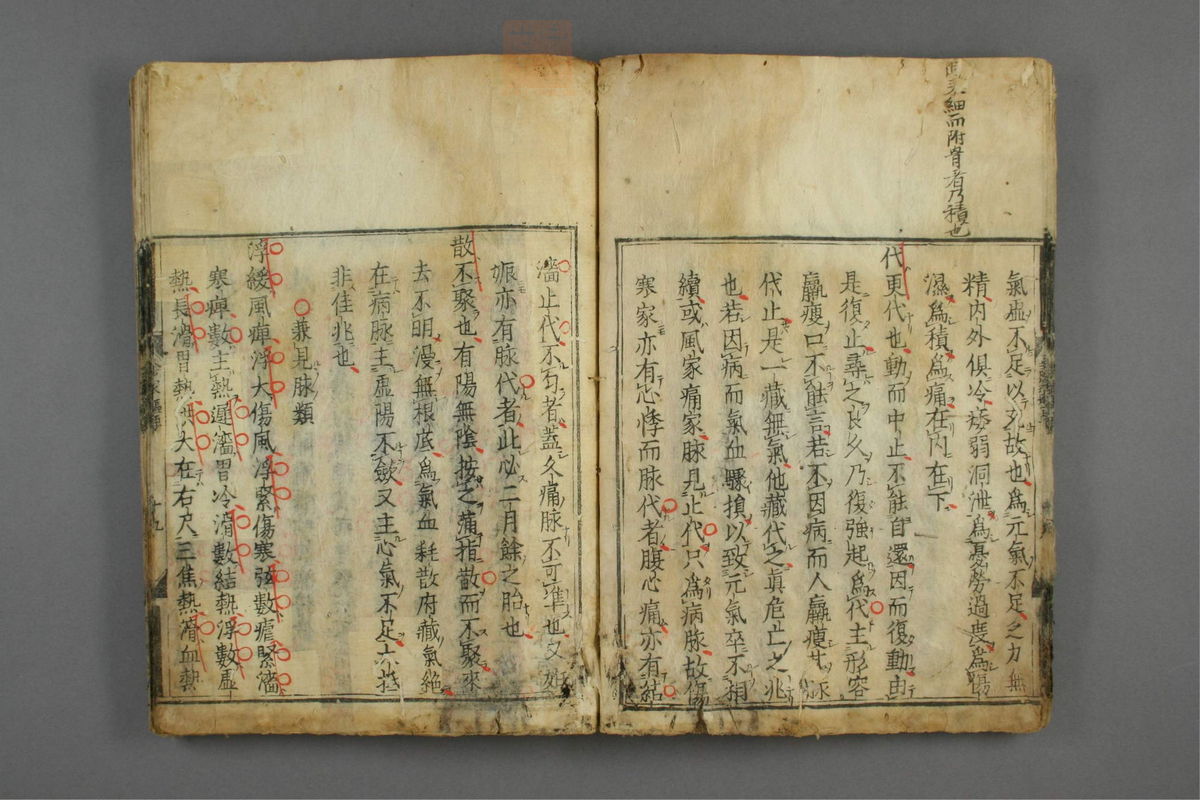 細而附骨者乃積也
氣虛不足以
故也爲元氣不足之力無
精內外俱冷痿弱洞泄爲憂勞過度爲傷
濕爲積爲痛在內在下
代更代也動而中止不能自還因而復動由
是復止尋之良久乃復強起爲代主形容
羸瘦口不能言若不因病而人羸瘦其脉
代止是一藏無氣他藏代之眞危亡之兆
也若因病而氣血驟損以致元氣卒不相
續或風家痛家脉見止代只爲病脉故傷
寒家亦有心悸而脉代者腹心痛亦有結
濇止代不匀者蓋久痛脉不可準也又妊
娠亦有脉代者此必二月餘之胎也
散不聚也有陽無陰按之滿指散而不聚來
去不明漫無根底爲氣血耗散府藏氣絕
在病脉主虛陽不斂又主心氣不足亦非
非佳兆也
○兼見脉類
浮緩風痺浮大傷風浮緊傷寒弦數瘧緊濇
寒痺數主熱遲濇胃冷滑數結熱浮數虛
熱長滑胃熱洪大在右尺三焦熱滑血熱